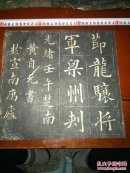 節龍驤將
軍梁州刺
光緒壬午楚南
黄自元書
於宣南寓廬